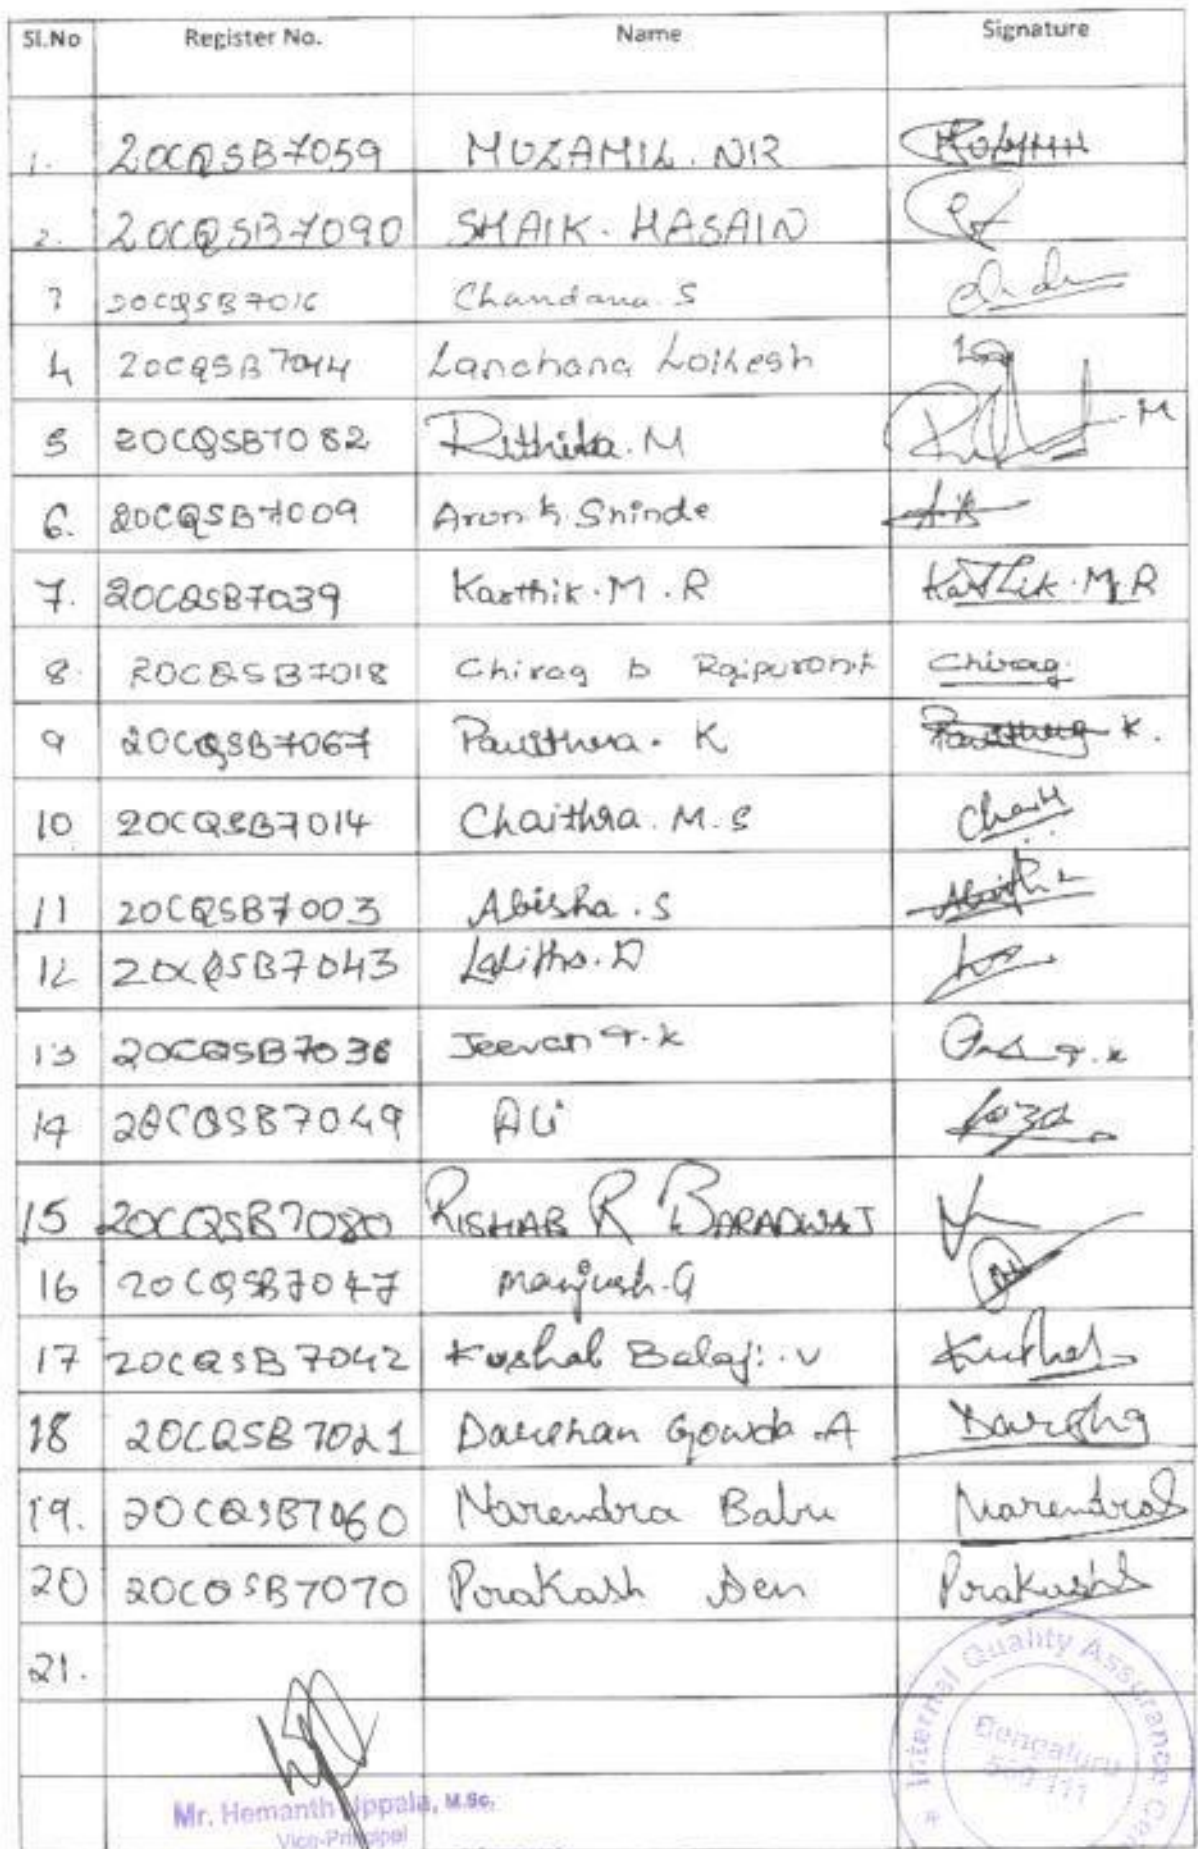 Sl.No Register No. Name Signature
1. 20CQSB7059 MUZAMIL. NIR
2. 20CQSB7090 SHAIK. HASAIN
3 20CQSB7016 Chandana. S
4 20CQSB7044 Lanchana Lolkesh
5 20CQSB7082 Rithika. M
6. 20CQSB7009 Arun. K. Shinde
7. 20CQSB7039 Karthik. M. R Karthik. M. R
8. 20CQSB7018 Chirag b Rajpurohit Chirag
9 20CQSB7067 Pavithra. K Pavithra K.
10 20CQSB7014 Chaithra. M. S
11 20CQSB7003 Abisha. S
12 20CQSB7043 Lalitha. D
13 20CQSB7036 Jeevan T. K
14 20CQSB7049 Ali
15 20CQSB7080 RISHAB R BARADWAJ
16 20CQSB7047 Manjush. G
17 20CQSB7042 Kushal Balaji. V Kushal
18 20CQSB7021 Darshan Gowda. A
19. 20CQSB7060 Narendra Babu Narendra
20 20CQSB7070 Prakash Sen Prakash
21.
Mr. Hemanth Uppala, M.Sc,
Vice-Principal
Internal Quality Assurance
Bengaluru
560 111